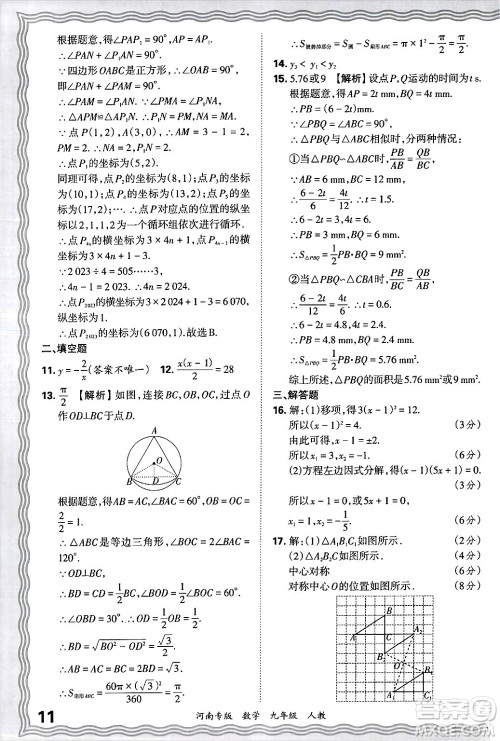 根据题意,得∠PAP₂=90°,AP=AP₁.
∴∠PAM+∠P₁AN=90°.
∵四边形OABC是正方形,∴∠OAB=90°.
∴∠PAM+∠APM=90°.
∴∠APM=∠P₁AN.
∴△APM≌△P₁AN.
∴AM=P₁N,PM=NA.
∵点P(1,2),A(3,0),∴AM=2,
PM=2.∴NA=2,P₁N=2.
∴点P₁的坐标为(5,2).
同理可得,点P₂的坐标为(8,1);点P₃的坐标
为(10,1);点P₄的坐标为(13,2);点P₅的坐
标为(17,2);…∴点P对应点的位置的纵坐
标以2,1,1,2为一个循环组依次进行循环.
∴点P₄ₙ的横坐标为3×4n+1.
∵2 023÷4=505……3,
∴当n=506时,4n=2 024.
∴点P₂₀₂₃的横坐标为3×2 024+1-3=
6 070.
∴点P₂₀₂₃的坐标为(6 070,1).故选B.
二、填空题
11. y=-2/x(答案不唯一) 12. x(x-1)/2=28
13. π/2 【解析】如图,连接BC,OB,过点O
作OD⊥BC于点D.
A
O
B D C
根据题意,得AB=AC,∠BAC=60°.
∴△ABC是等边三角形,∠BOC=120°.
∴BD=CD=1/2BC=1/2AB,∠BOD=
1/2∠BOC=60°.
∴∠OBD=30°.∴OD=1/2OB=1/2.
∴BD=√(BO²-OD²)=√3/2.
∴AB=BC=2BD=√3.
∴S扇形ABC=60π×(√3)²/360=π/2.
∴S被剪掉部分=S圆-S扇形ABC=π×1²-π/2=π/2.
14. y₃<y₁<y₂
15. 5.76或9 【解析】设点P,Q运动的时间为t s.
根据题意,得AP=2t mm,BQ=4t mm.
∴PB=(6-2t)mm.
当△PBQ与△ABC相似时,分两种情况:
①当△PBQ∽△ABC时,PB/AB=QB/BC.
∵AB=6 mm,BC=12 mm,
∴(6-2t)/6=4t/12.∴t=1.5.
∴PB=3 mm,BQ=6 mm.
∴S△PBQ=1/2PB·BQ=9 mm².
②当△PBQ∽△CBA时,PB/BC=QB/AB.
∴(6-2t)/12=4t/6.∴t=0.6.
∴PB=4.8 mm,BQ=2.4 mm.
∴S△PBQ=1/2PB·BQ=5.76 mm².
综上所述,△PBQ的面积是5.76 mm²或9 mm².
三、解答题
16. 解:(1)移项,得4(x-1)²=16.
所以(x-1)²=4. (3分)
所以x₁=3,x₂=-1. (6分)
(2)方程左边因式分解,得(x-1)(5x+1)=0.
所以x-1=0或5x+1=0. (3分)
x₁=1,x₂=-1/5. (6分)
17. 解:(1)△A₁B₁C₁如图所示. (2分)
(2)△A₂B₂C₂如图所示. (4分)
中心对称 (6分)
对称中心O的位置如图所示. (8分)
B
A
C
A₂
B₂
O
B₁
A₁
11 河南专版 数学 九年级 人教